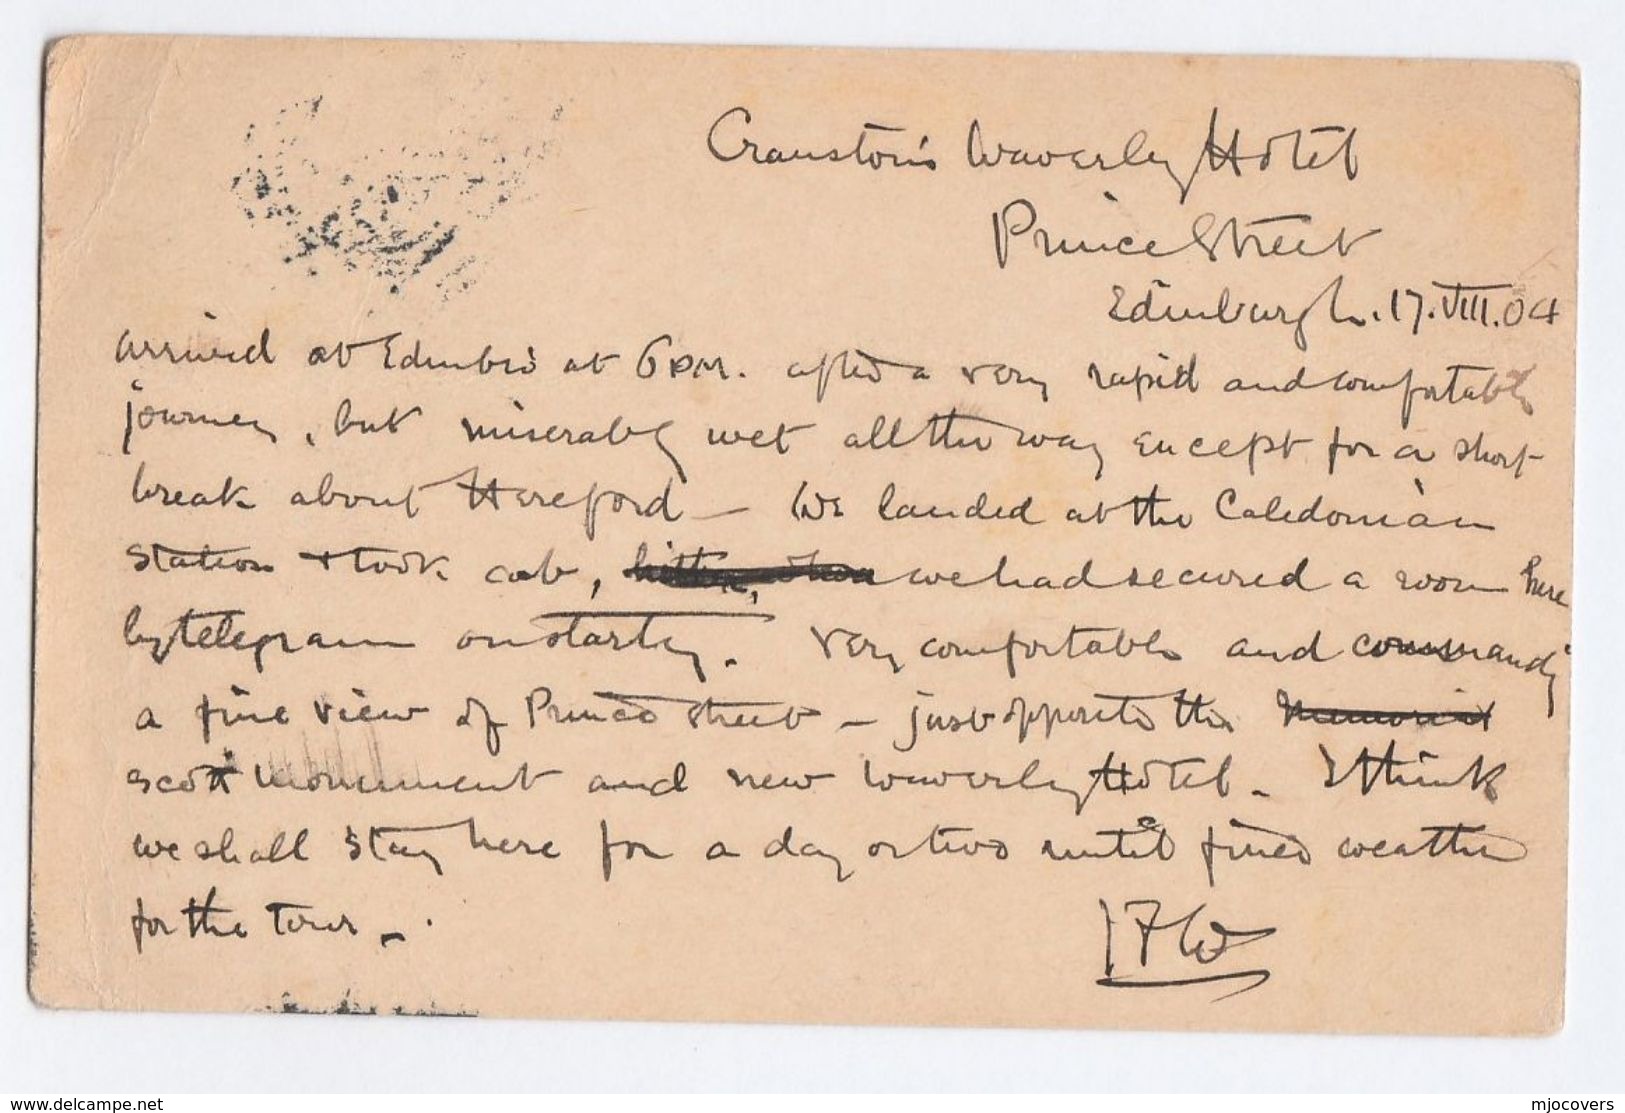 Cranston's Waverley Hotel
Prince Street
Edinburgh. 17.VIII.04
arrived at Edinbro' at 6 PM. after a very rapid and comfortable
journey, but miserably wet all the way except for a short
break about Hereford — We landed at the Caledonian
Station + took cab, we had secured a room here
by telegram on starting. Very comfortable and commandg
a fine view of Princes Street — just opposite the Memorial
Scott Monument and new Waverley Hotel. I think
we shall stay here for a day or two until fined weather
for the tour —.
JFW
delcampe.net
mjocovers